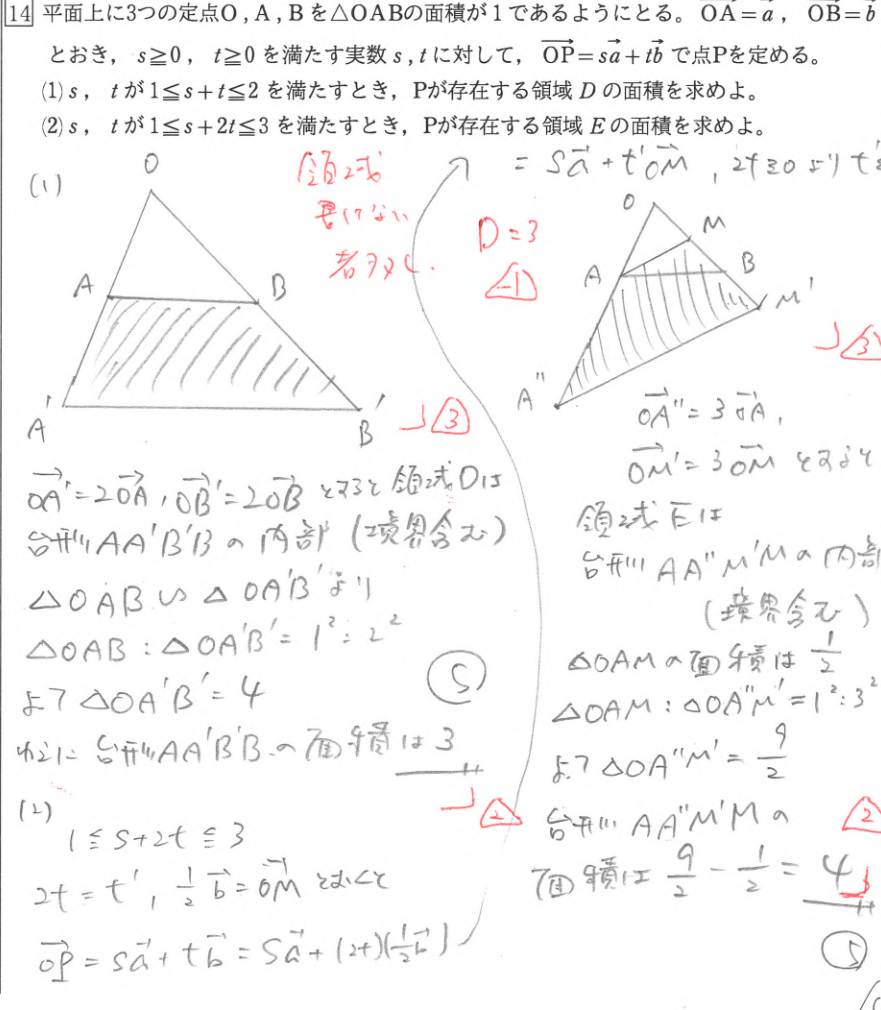 14 平面上に3つの定点O,A,Bを△OABの面積が1であるようにとる。OA=a, OB=b
とおき,s≧0,t≧0を満たす実数s,tに対して,OP=sa+tbで点Pを定める。
(1) s,tが1≦s+t≦2を満たすとき,Pが存在する領域Dの面積を求めよ。
(2) s,tが1≦s+2t≦3を満たすとき,Pが存在する領域Eの面積を求めよ。
(1)
O
A
B
A'
B'
③
領域
書けない
者多く.
D=3
-1
OA'=2OA, OB'=2OBとすると領域Dは
台形AA'B'Bの内部(境界含む)
△OAB∽△OA'B'より
△OAB:△OA'B'=1²:2²
よって△OA'B'=4
ゆえに台形AA'B'Bの面積は3
5
2
(2)
1≦s+2t≦3
2t=t', 1/2 b=OMとおくと
OP=sa+tb=sa+(2t)(1/2 b)
=sa+t'OM, 2t≧0よりt'≧
O
M
A
B
M'
A"
3
OA"=3OA,
OM'=3OMとすると
領域Eは
台形AA"M'Mの内部
(境界含む)
△OAMの面積は1/2
△OAM:△OA"M'=1²:3²
よって△OA"M'=9/2
台形AA"M'Mの
2
面積は9/2-1/2=4
5